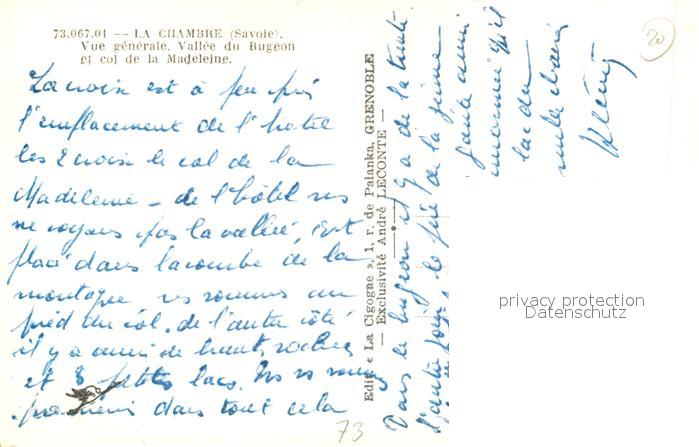 73.067.01 — LA CHAMBRE (Savoie).
Vue générale. Vallée du Bugeon
et col de la Madeleine.
La croix est à peu près
l'emplacement de l'hotel
les 2 croix le col de la
Madeleine - de l'hôtel ns
ne voyons pas la vallée, il est
placé dans la combe de la
montagne ns sommes au
pied du col. de l'autre côté
il y a aussi de hauts rochers
et 3 petits lacs. Ns ns
dans tout cela
Edit. « La Cigogne », 1, r. de Palanka, GRENOBLE
— Exclusivité André LECONTE —
Dans le bugeon il y a de la truite
l'autre jour, le père de la jeune
aussi
qu'il
20
73
privacy protection
Datenschutz